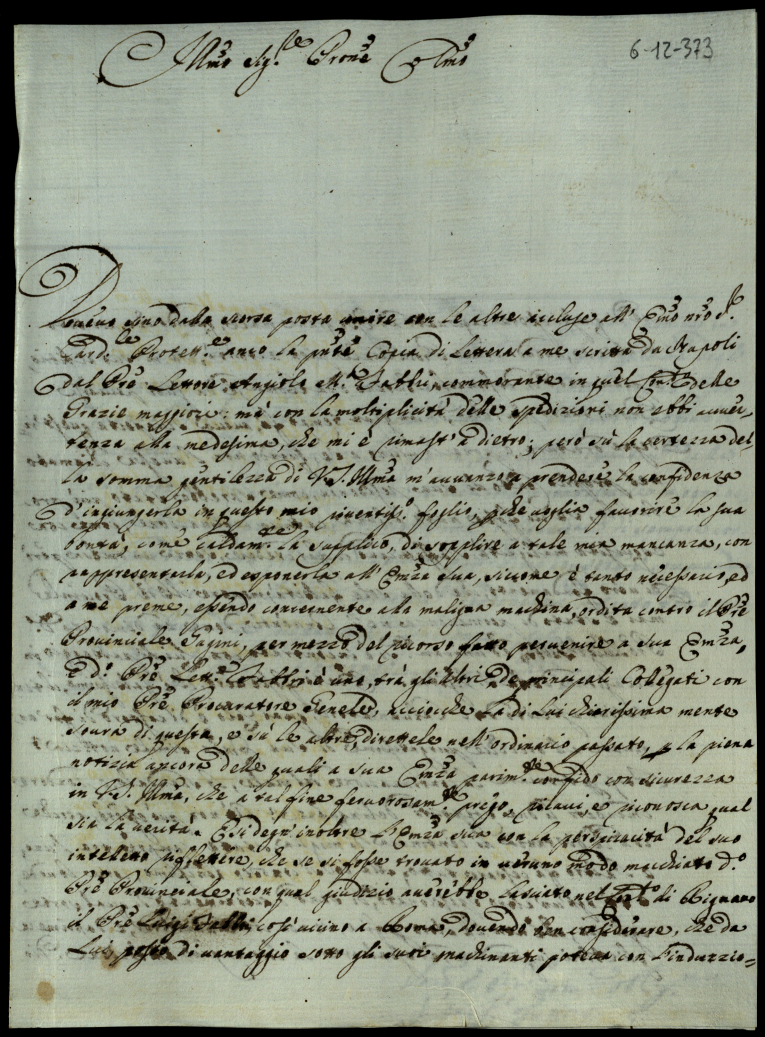 6-12-373
Illmo Sig.re Prone Colmo
Doveva sino dalla scorsa posta unire con le altre accluse all' Emo nro S.re
Card.le Protett.e anco la pnte Copia di Lettera a me scritta da Napoli
dal Pre Lettore Angiolo M.a Fabbri, commorante in quel Con.to delle
Grazie maggiore: mà con la moltiplicità delle spedizioni non ebbi avver,
tenza alla medesima, che mi è rimast' a dietro; però sù la certezza del,
la somma gentilezza di V.S. Illma m'avvanzo a prendere la confidenza
d'ingiungerla in questo mio riventiss.o foglio, pche voglia favorire la sua
bontà, come caldam.te la supplico, di supplire a tale mia mancanza, con
rappresentarla, ed esponerla all' Emza Sua, siccome è tanto necessario, ed
a me preme, essendo concernente alla maligna machina, ordita contro il Pre
Provinciale, per mezzo del ricorso fatto pervenire a sua Emza,
e d.o Pre Lett.e Fabbri è uno, trà gli altri, de principali Collegati con
il mio Pre Procuratore Genele, acciocche la di Lui chiarissima mente
sovra di questa, e sù le altre, direttele nell' ordinario passato, p la piena
notizia ancora delle quali a sua Emza parim.te confido con sicurezza
in V.S. Illma, che a tal fine fervorosam.te prego, rilavi, e riconosca qual
sia la verità. Si degn' inoltre l' Emza sua con la perspicacità del suo
intelletto riflettere, che se si fosse trovato in veruno modo macchiato d.o
Pre Provinciale, con qual giudizio averebbe lasciato nel Con.to di Rignano
il Pre Luigi Fabbri così vicino a Roma, dovendo ben considerare, che da
Lui posto di vantaggio sotto gli suoi machinanti poteva con l'induzzio=